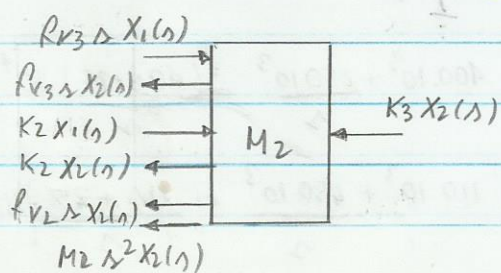 fv3 s X1(s)
fv3 s X2(s)
K2 X1(s)
K2 X2(s)
fv2 s X2(s)
M2 s² X2(s)
M2
K3 X2(s)